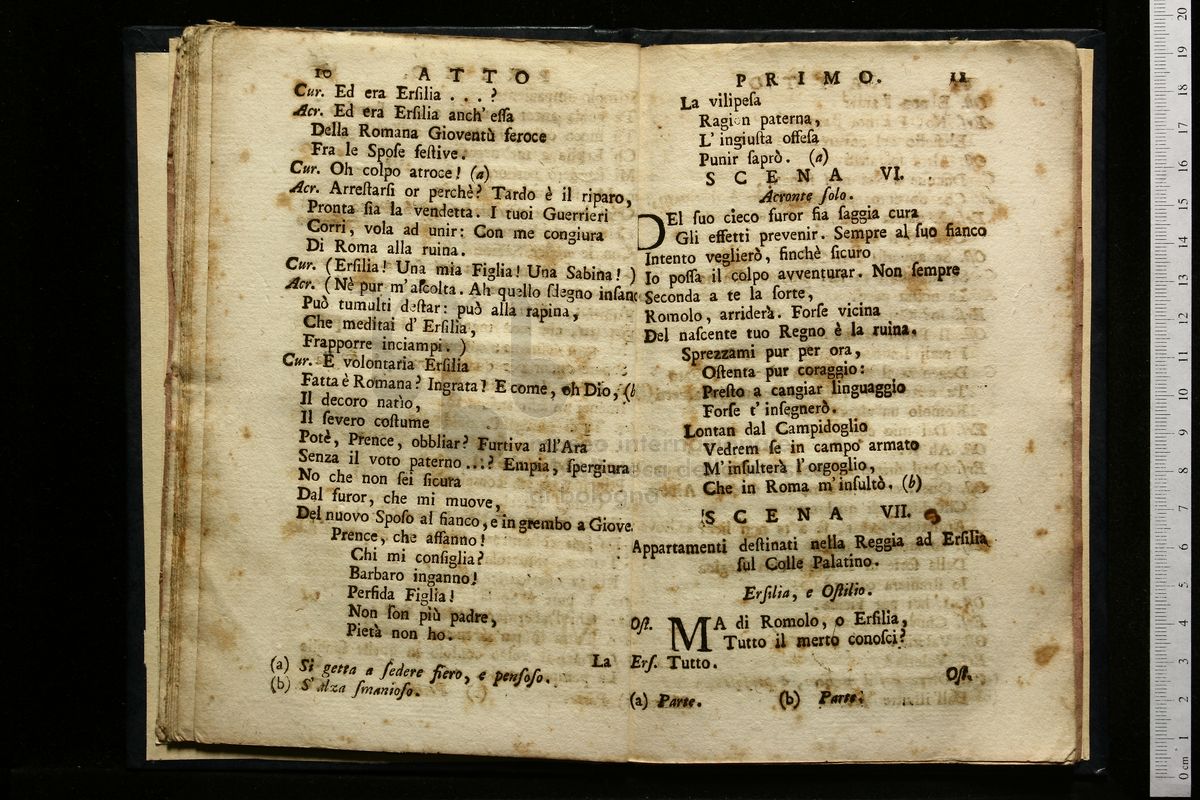 10 ATTO
Cur. Ed era Erſilia . . . ?
Acr. Ed era Erſilia anch' eſſa
Della Romana Gioventù feroce
Fra le Spoſe feſtive.
Cur. Oh colpo atroce! (a)
Acr. Arreſtarſi or perchè? Tardo è il riparo,
Pronta ſia la vendetta. I tuoi Guerrieri
Corri, vola ad unir: Con me congiura
Di Roma alla ruina.
Cur. (Erſilia! Una mia Figlia! Una Sabina!)
Acr. (Nè pur m'aſcolta. Ah quello ſdegno inſan
Può tumulti deſtar: può alla rapina,
Che meditai d' Erſilia,
Frapporre inciampi.)
Cur. E volontaria Erſilia
Fatta è Romana? Ingrata! E come, oh Dio, (b
Il decoro natìo,
Il ſevero coſtume
Potè, Prence, obbliar? Furtiva all'Ara
Senza il voto paterno ...? Empia, ſpergiura
No che non ſei ſicura
Dal furor, che mi muove,
Del nuovo Spoſo al fianco, e in grembo a Giove.
Prence, che affanno!
Chi mi conſiglia?
Barbaro inganno!
Perfida Figlia!
Non ſon più padre,
Pietà non ho.
La
(a) Si getta a ſedere fiero, e penſoſo.
(b) S'alza ſmanioſo.
PRIMO. 11
La vilipeſa
Ragion paterna,
L' ingiuſta offeſa
Punir ſaprò. (a)
SCENA VI.
Acronte ſolo.
DEl ſuo cieco furor fia ſaggia cura
Gli effetti prevenir. Sempre al ſuo fianco
Intento veglierò, finchè ſicuro
Io poſſa il colpo avventurar. Non ſempre
Seconda a te la ſorte,
Romolo, arriderà. Forſe vicina
Del naſcente tuo Regno è la ruina.
Sprezzami pur per ora,
Oſtenta pur coraggio:
Preſto a cangiar linguaggio
Forſe t' inſegnerò.
Lontan dal Campidoglio
Vedrem ſe in campo armato
M' inſulterà l' orgoglio,
Che in Roma m' inſultò. (b)
SCENA VII.
Appartamenti deſtinati nella Reggia ad Erſilia
ſul Colle Palatino.
Erſilia, e Oſtilio.
Oſt. MA di Romolo, o Erſilia,
Tutto il merto conoſci?
Erſ. Tutto.
Oſt.
(a) Parte. (b) Parte.